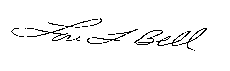 Lori L Bell